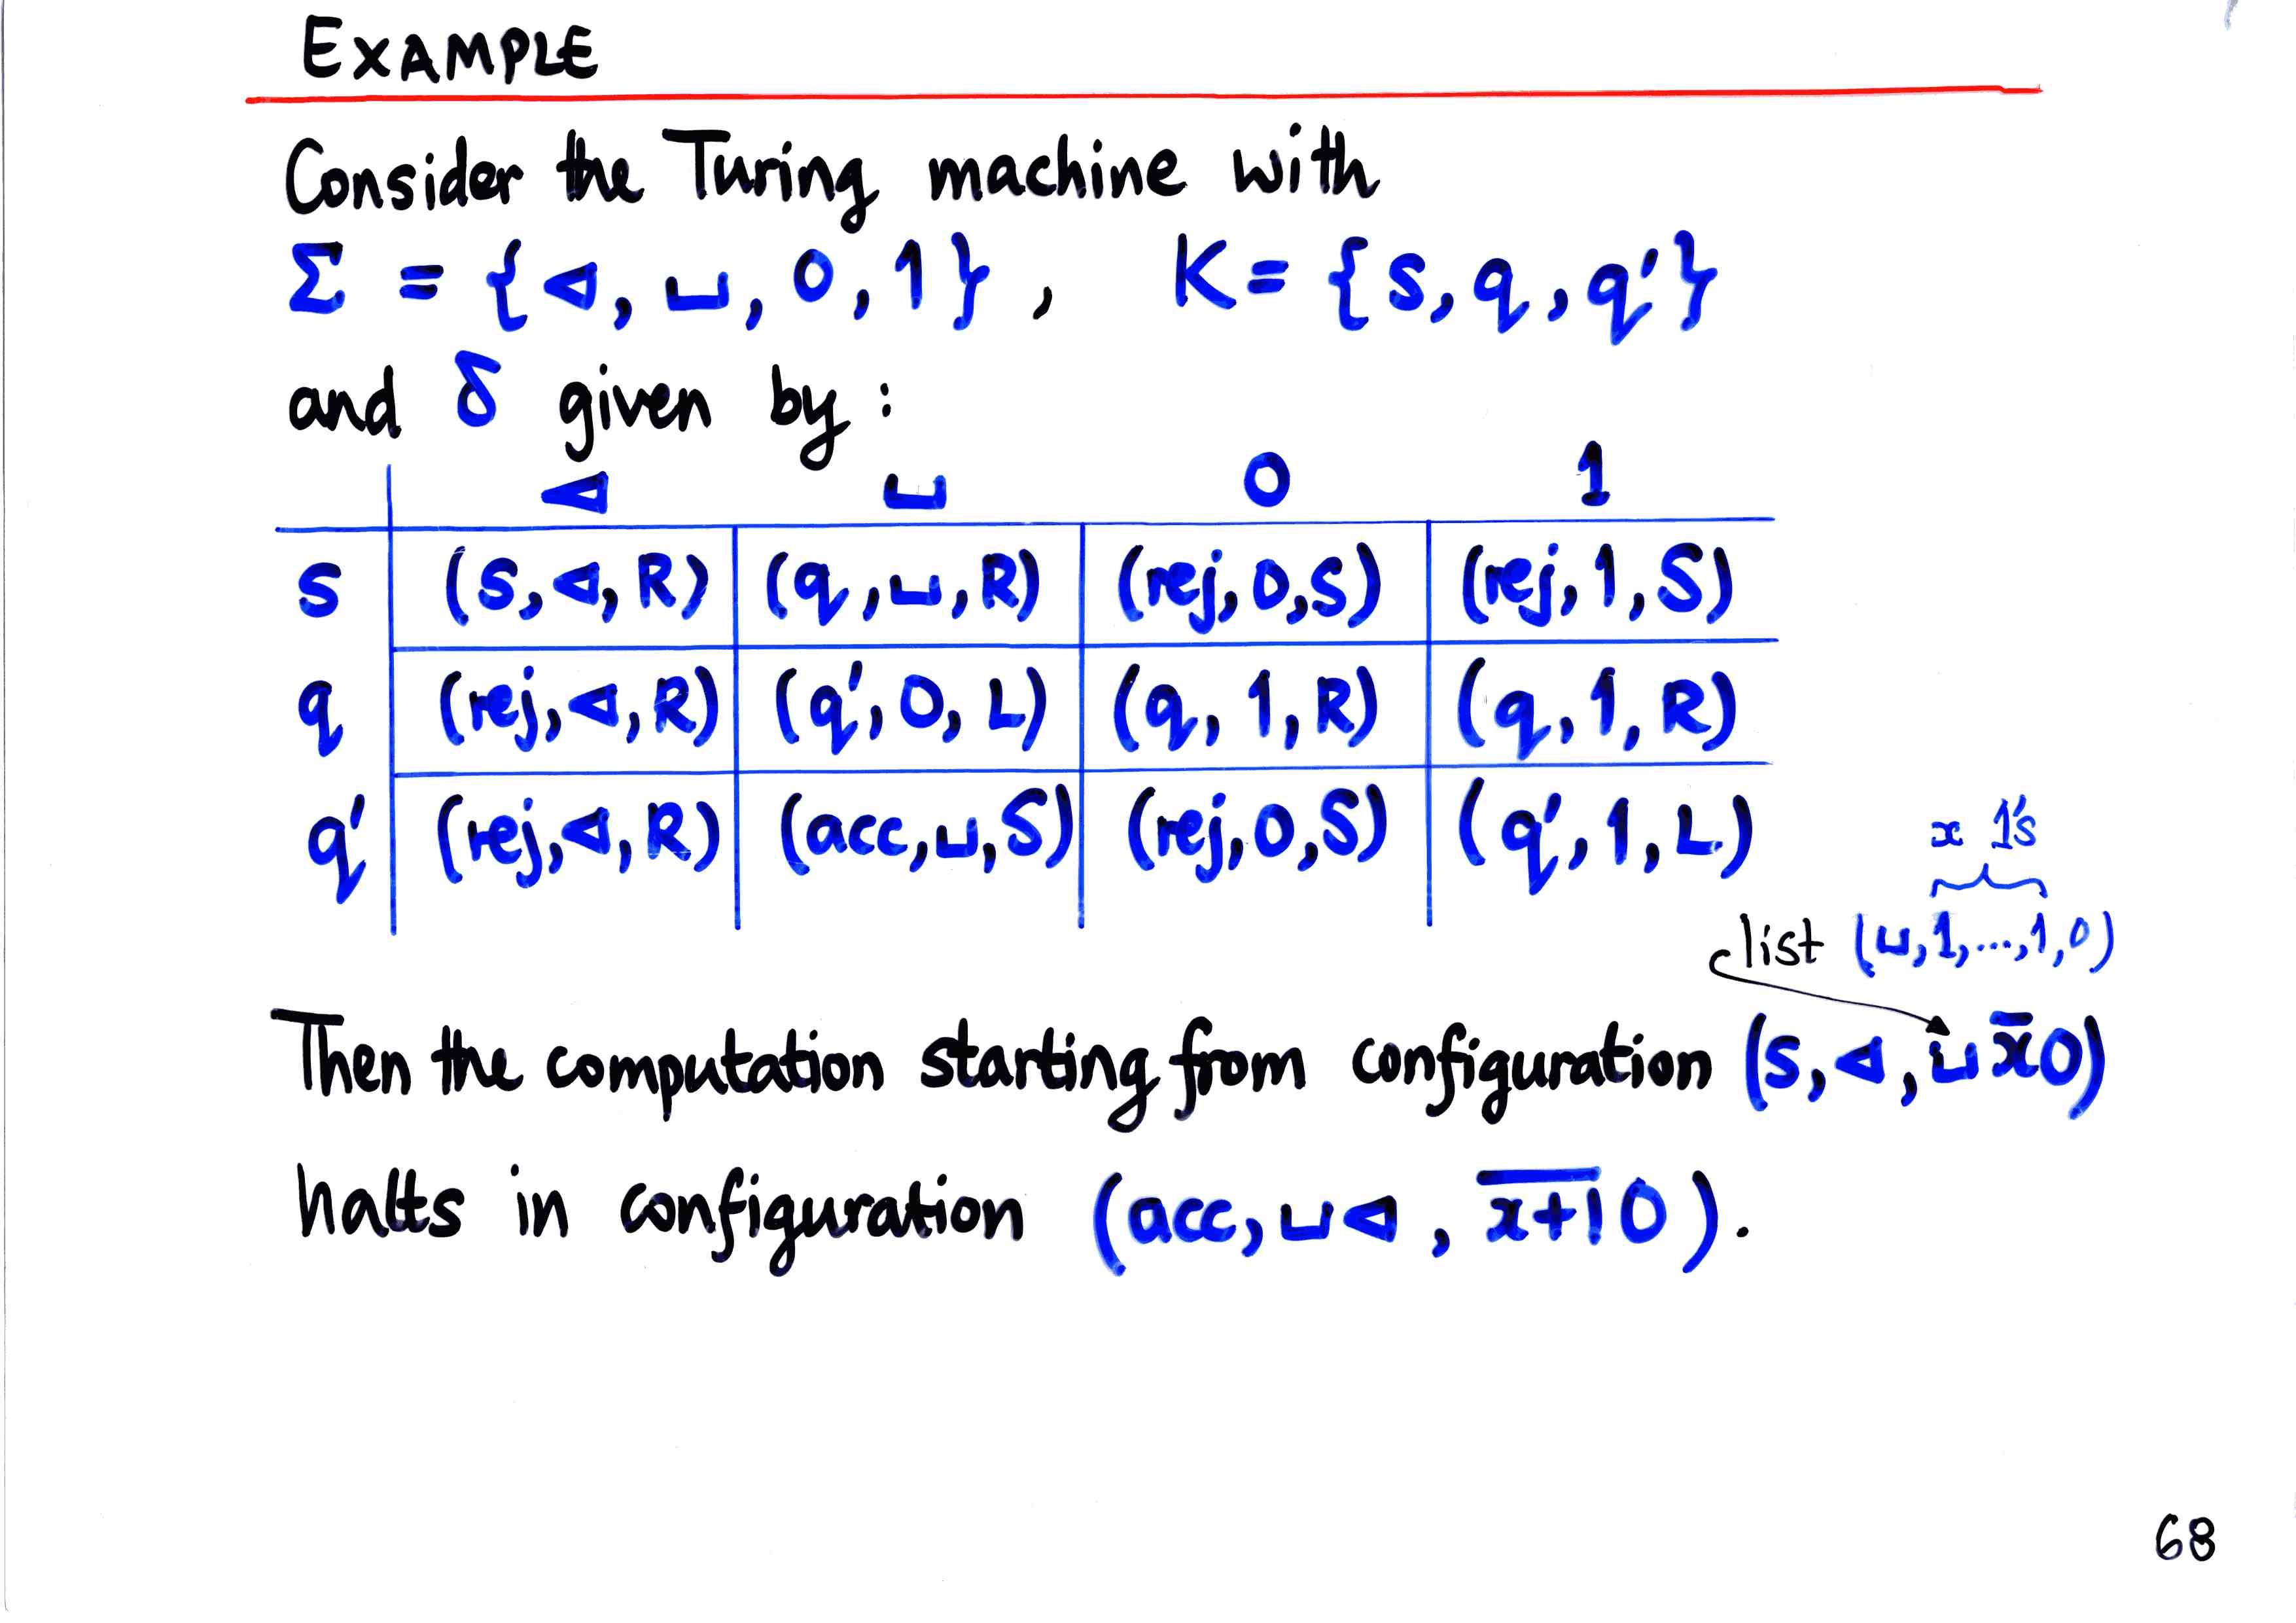 EXAMPLE
Consider the Turing machine with
Σ = {⊲, ⊔, 0, 1}, K = {s, q, q'}
and δ given by:
⊲ ⊔ 0 1
s (s, ⊲, R) (q, ⊔, R) (rej, 0, S) (rej, 1, S)
q (rej, ⊲, R) (q', 0, L) (q, 1, R) (q, 1, R)
q' (rej, ⊲, R) (acc, ⊔, S) (rej, 0, S) (q', 1, L)
x 1's
list (⊔, 1, ..., 1, 0)
Then the computation starting from configuration (s, ⊲, ⊔x̄0)
halts in configuration (acc, ⊔⊲, x̅+̅1̅0).
68